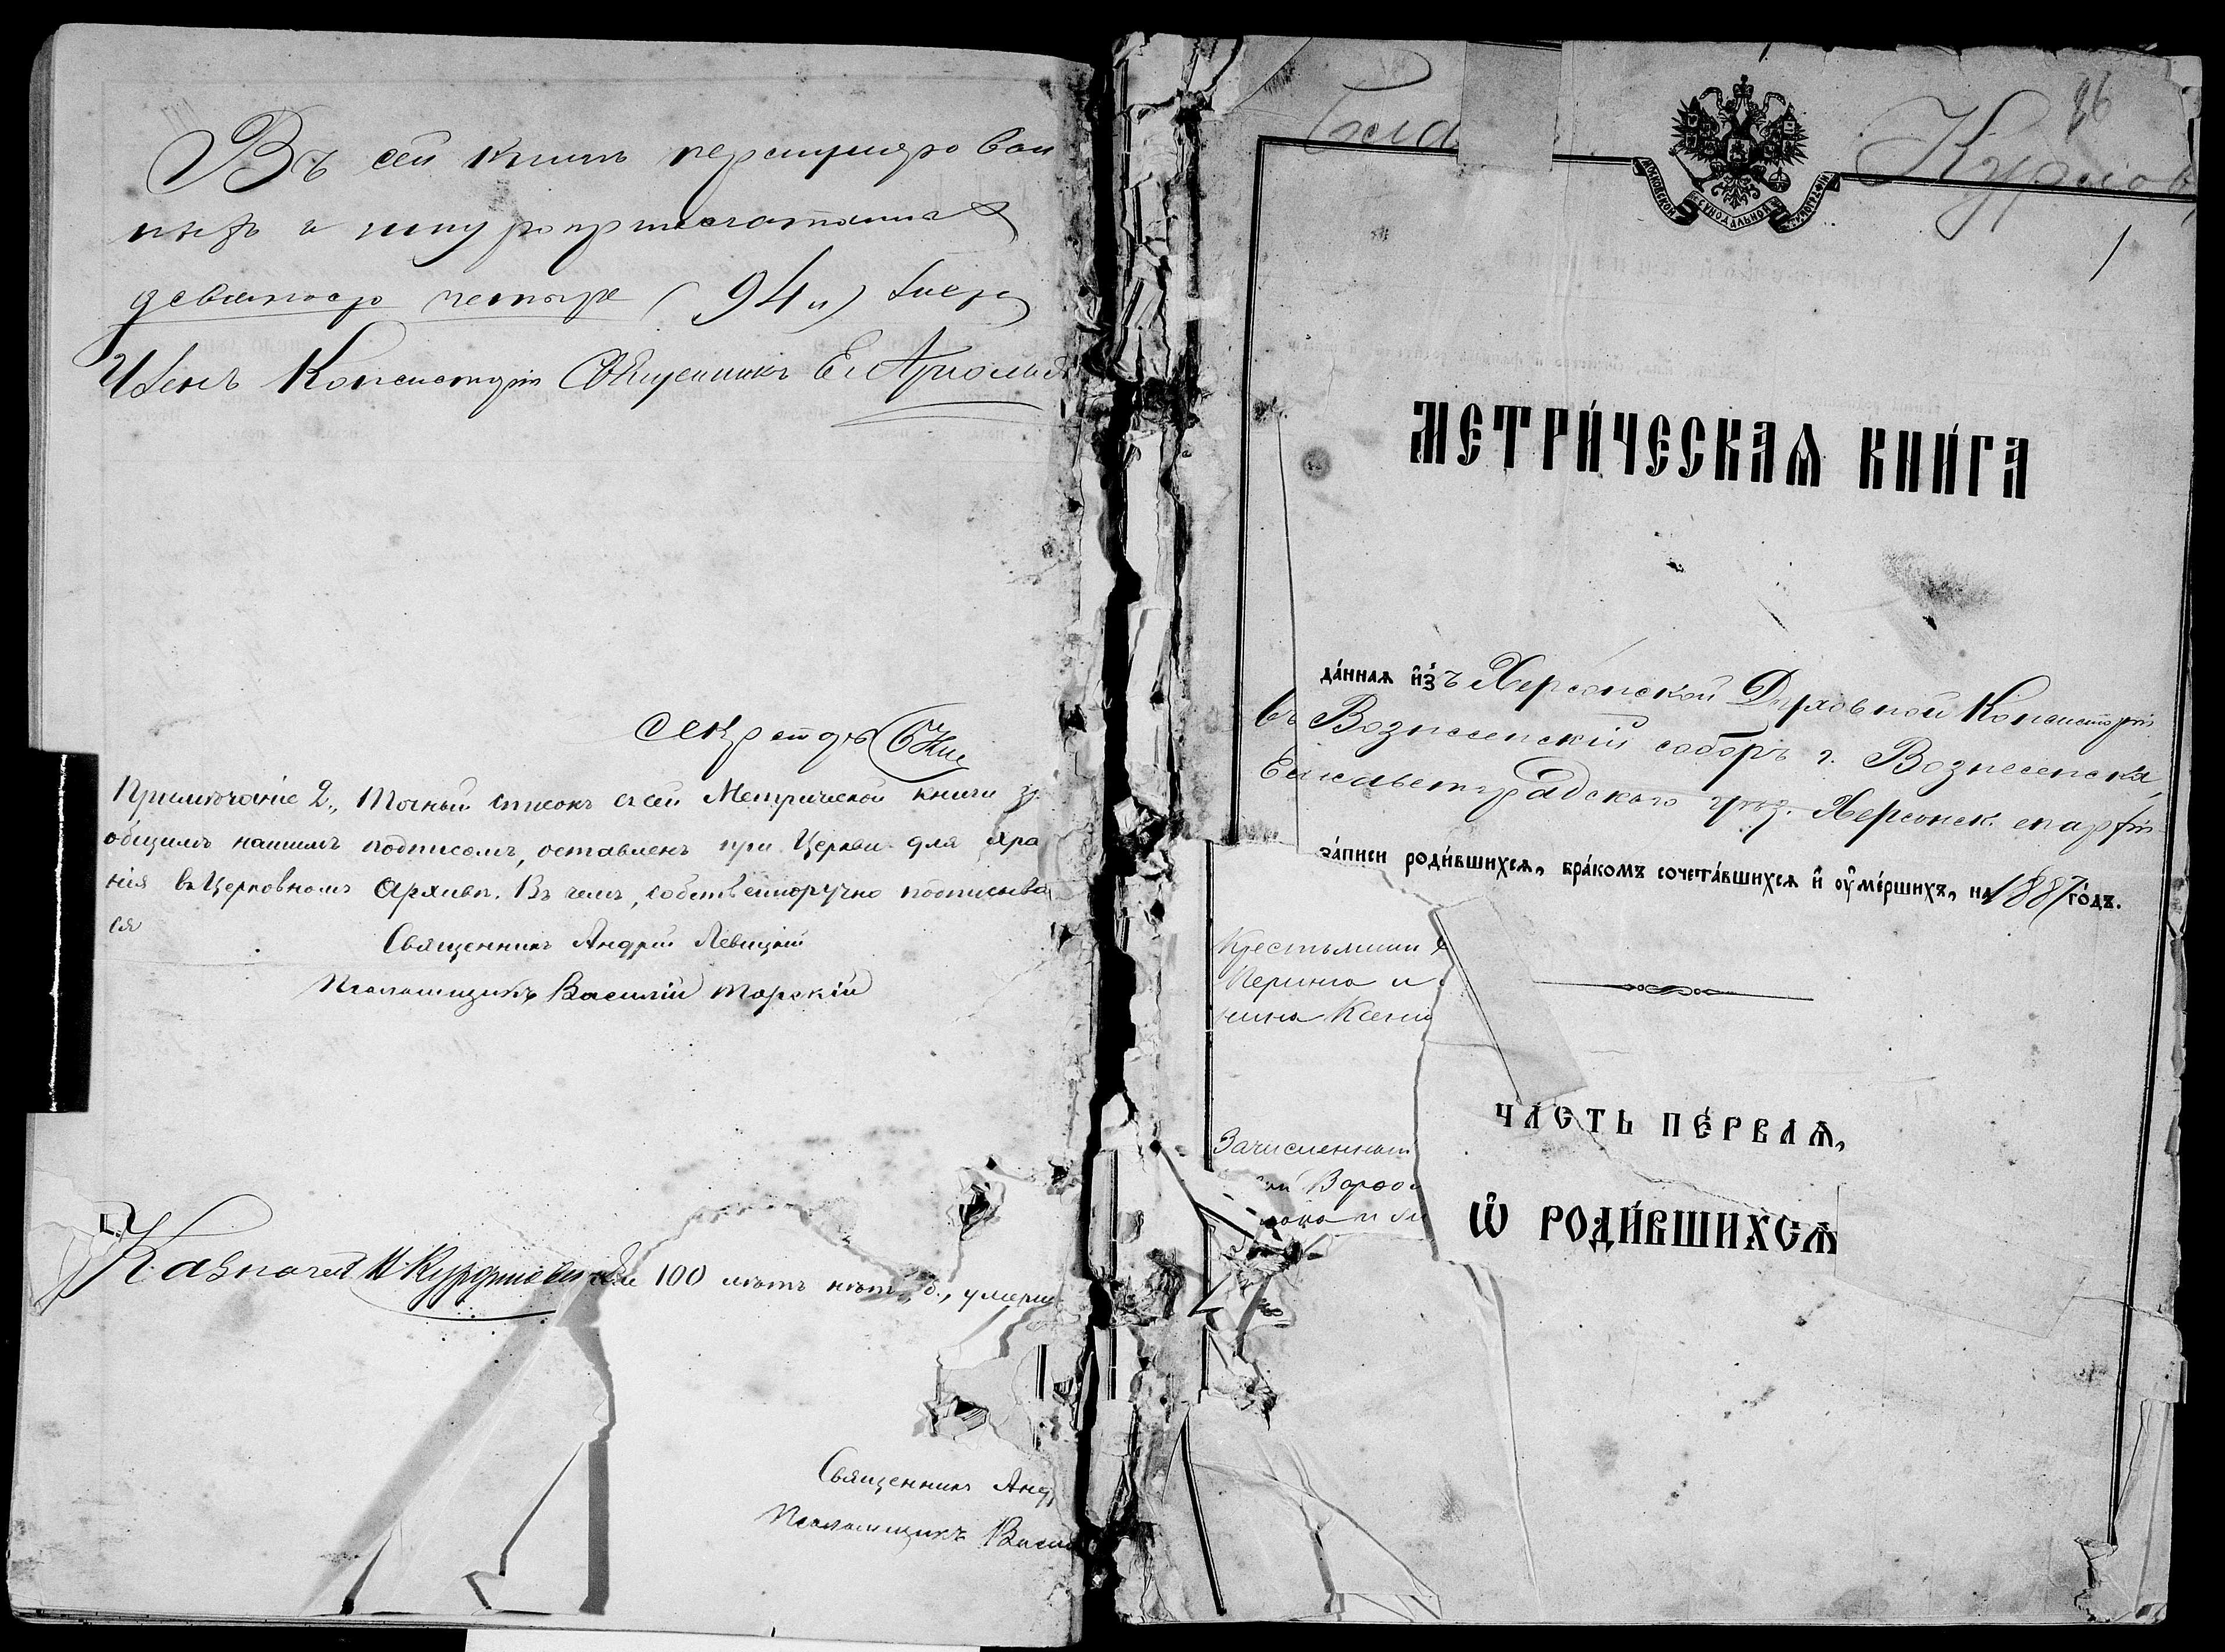 Въ сей книгѣ перенумерован
ныхъ и шнуроприпечатанныхъ
девяносто четыре (94 л)
Членъ Консисторіи Священникъ Е. Арнольд
Секретарь
Примѣчаніе 2., Точный списокъ съ сей Метрической книги за
общимъ нашимъ подписомъ, оставленъ при Церкви для хра
нія въ Церковномъ Архивѣ. Въ чемъ, собственноручно подписыва
ся
Священникъ Андрей Левицкій
Псаломщикъ Василій Торскій
Казначей
100 лѣтъ нѣтъ, умерш
Священникъ Анд
Псаломщикъ Васи
86
МОСКОВСКОЙ СѴНОДАЛЬНОЙ ТѴПОГРАФІИ
1
МЕТРИ́ЧЕСКАѦ КНИ́ГА
да́ннаѧ и҆з̾ъ Херсонской Духовной Консисторіи
въ Вознесенскій соборъ г. Вознесенска,
Елисаветградскаго уѣз. Херсонск. епархіи
за́писи роди́вшихсѧ, бра́комъ сочета́вшихсѧ и҆ оу҆ме́ршихъ, на 1887 го́дъ.
Перина и
нина Ксени
ЧА́СТЬ ПЕ́РВАѦ,
Зачисленный
Ѡ҆ РОДИ́ВШИХСѦ